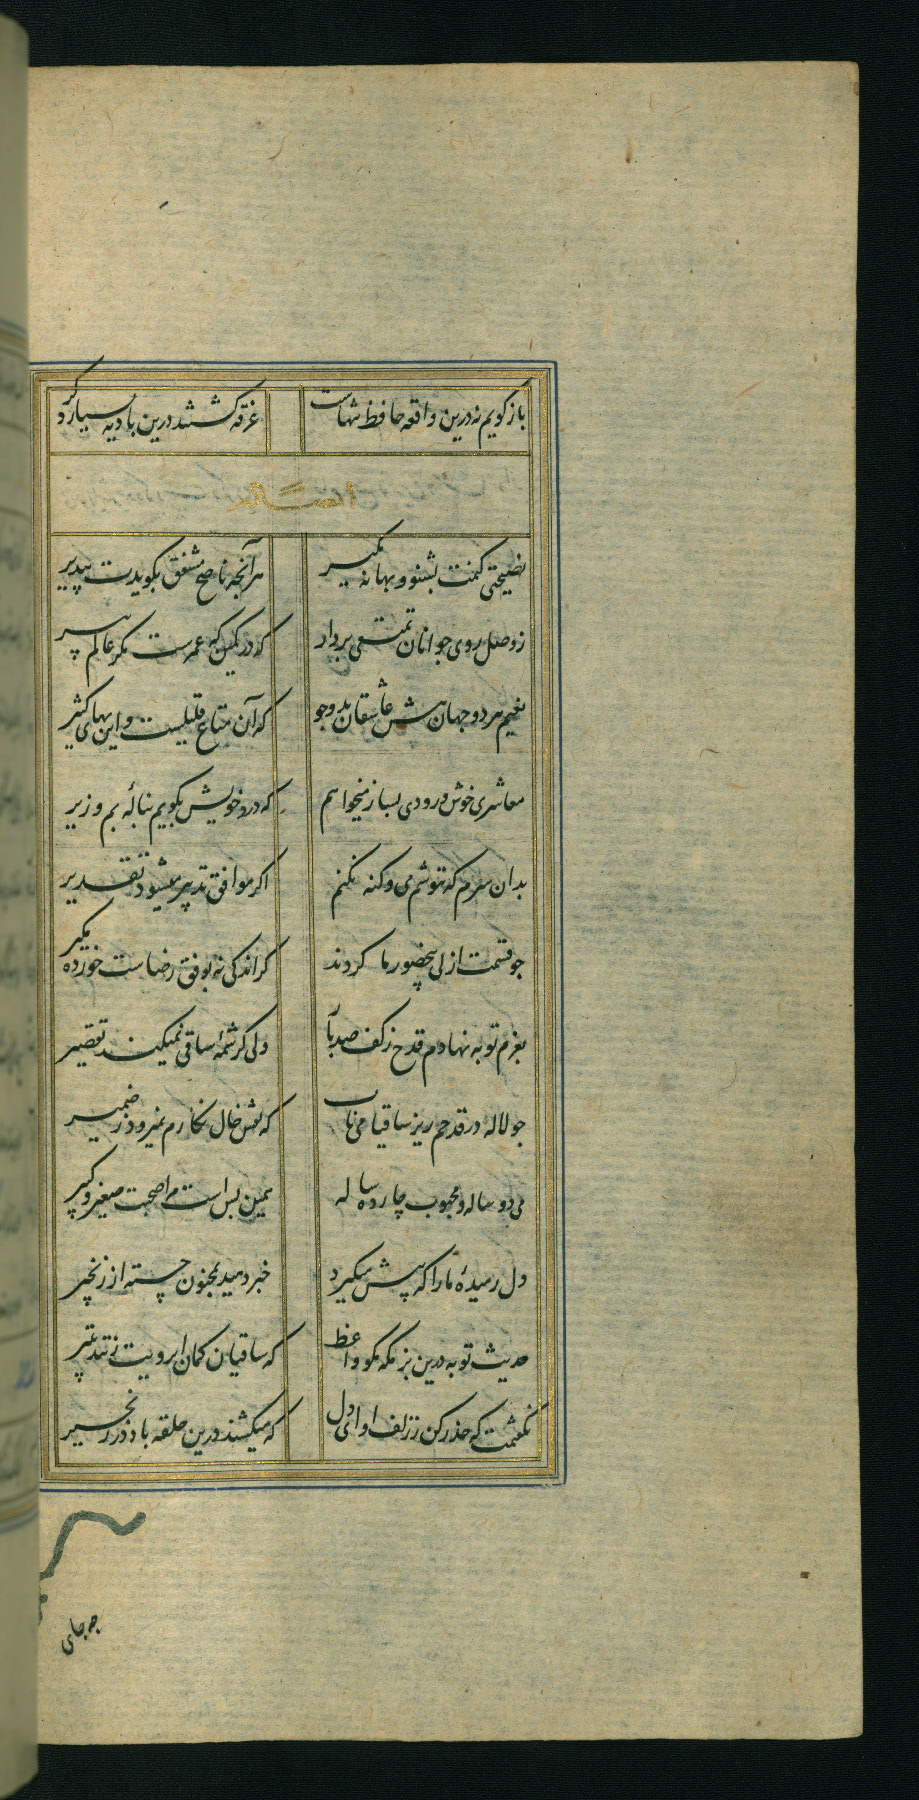 باز گویم نه درین واقعه حافظ تنهاست غرقه گشتند درین بادیه بسیار دگر
ایضا له
نصیحتی کنمت بشنو و بهانه مگیر هر آنچه ناصح مشفق بگویدت بپذیر
ز وصل روی جوانان تمتعی بردار که در کمین که عمرست مکر عالم پیر
نعیم هر دو جهان پیش عاشقان بدو جو که آن متاع قلیلست و این بهای کثیر
معاشری خوش و رودی بساز میخواهم که درد خویش بگویم بنالهٔ بم و زیر
بدان سرم که ننوشم می و گنه نکنم اگر موافق تدبیر میشود تقدیر
چو قسمت ازلی بیحضور ما کردند گر اندکی نه بوفق رضاست خورده مگیر
بعزم توبه نهادم قدح ز کف صد بار ولی کرشمهٔ ساقی نمیکند تقصیر
چو لاله در قدحم ریز ساقیا می ناب که نقش خال نگارم نمیرود ز ضمیر
می دو ساله و محبوب چارده ساله همین بس است مرا صحبت صغیر و کبیر
دل رمیدهٔ ما را که پیش میگیرد خبر دهید بمجنون جسته از زنجیر
حدیث توبه درین بزمگه مگو واعظ که ساقیان کمان ابرویت زنند بتیر
نگفتمت که حذر کن ز زلف او ای دل که میکشند درین حلقه باد در زنجیر
چه جای